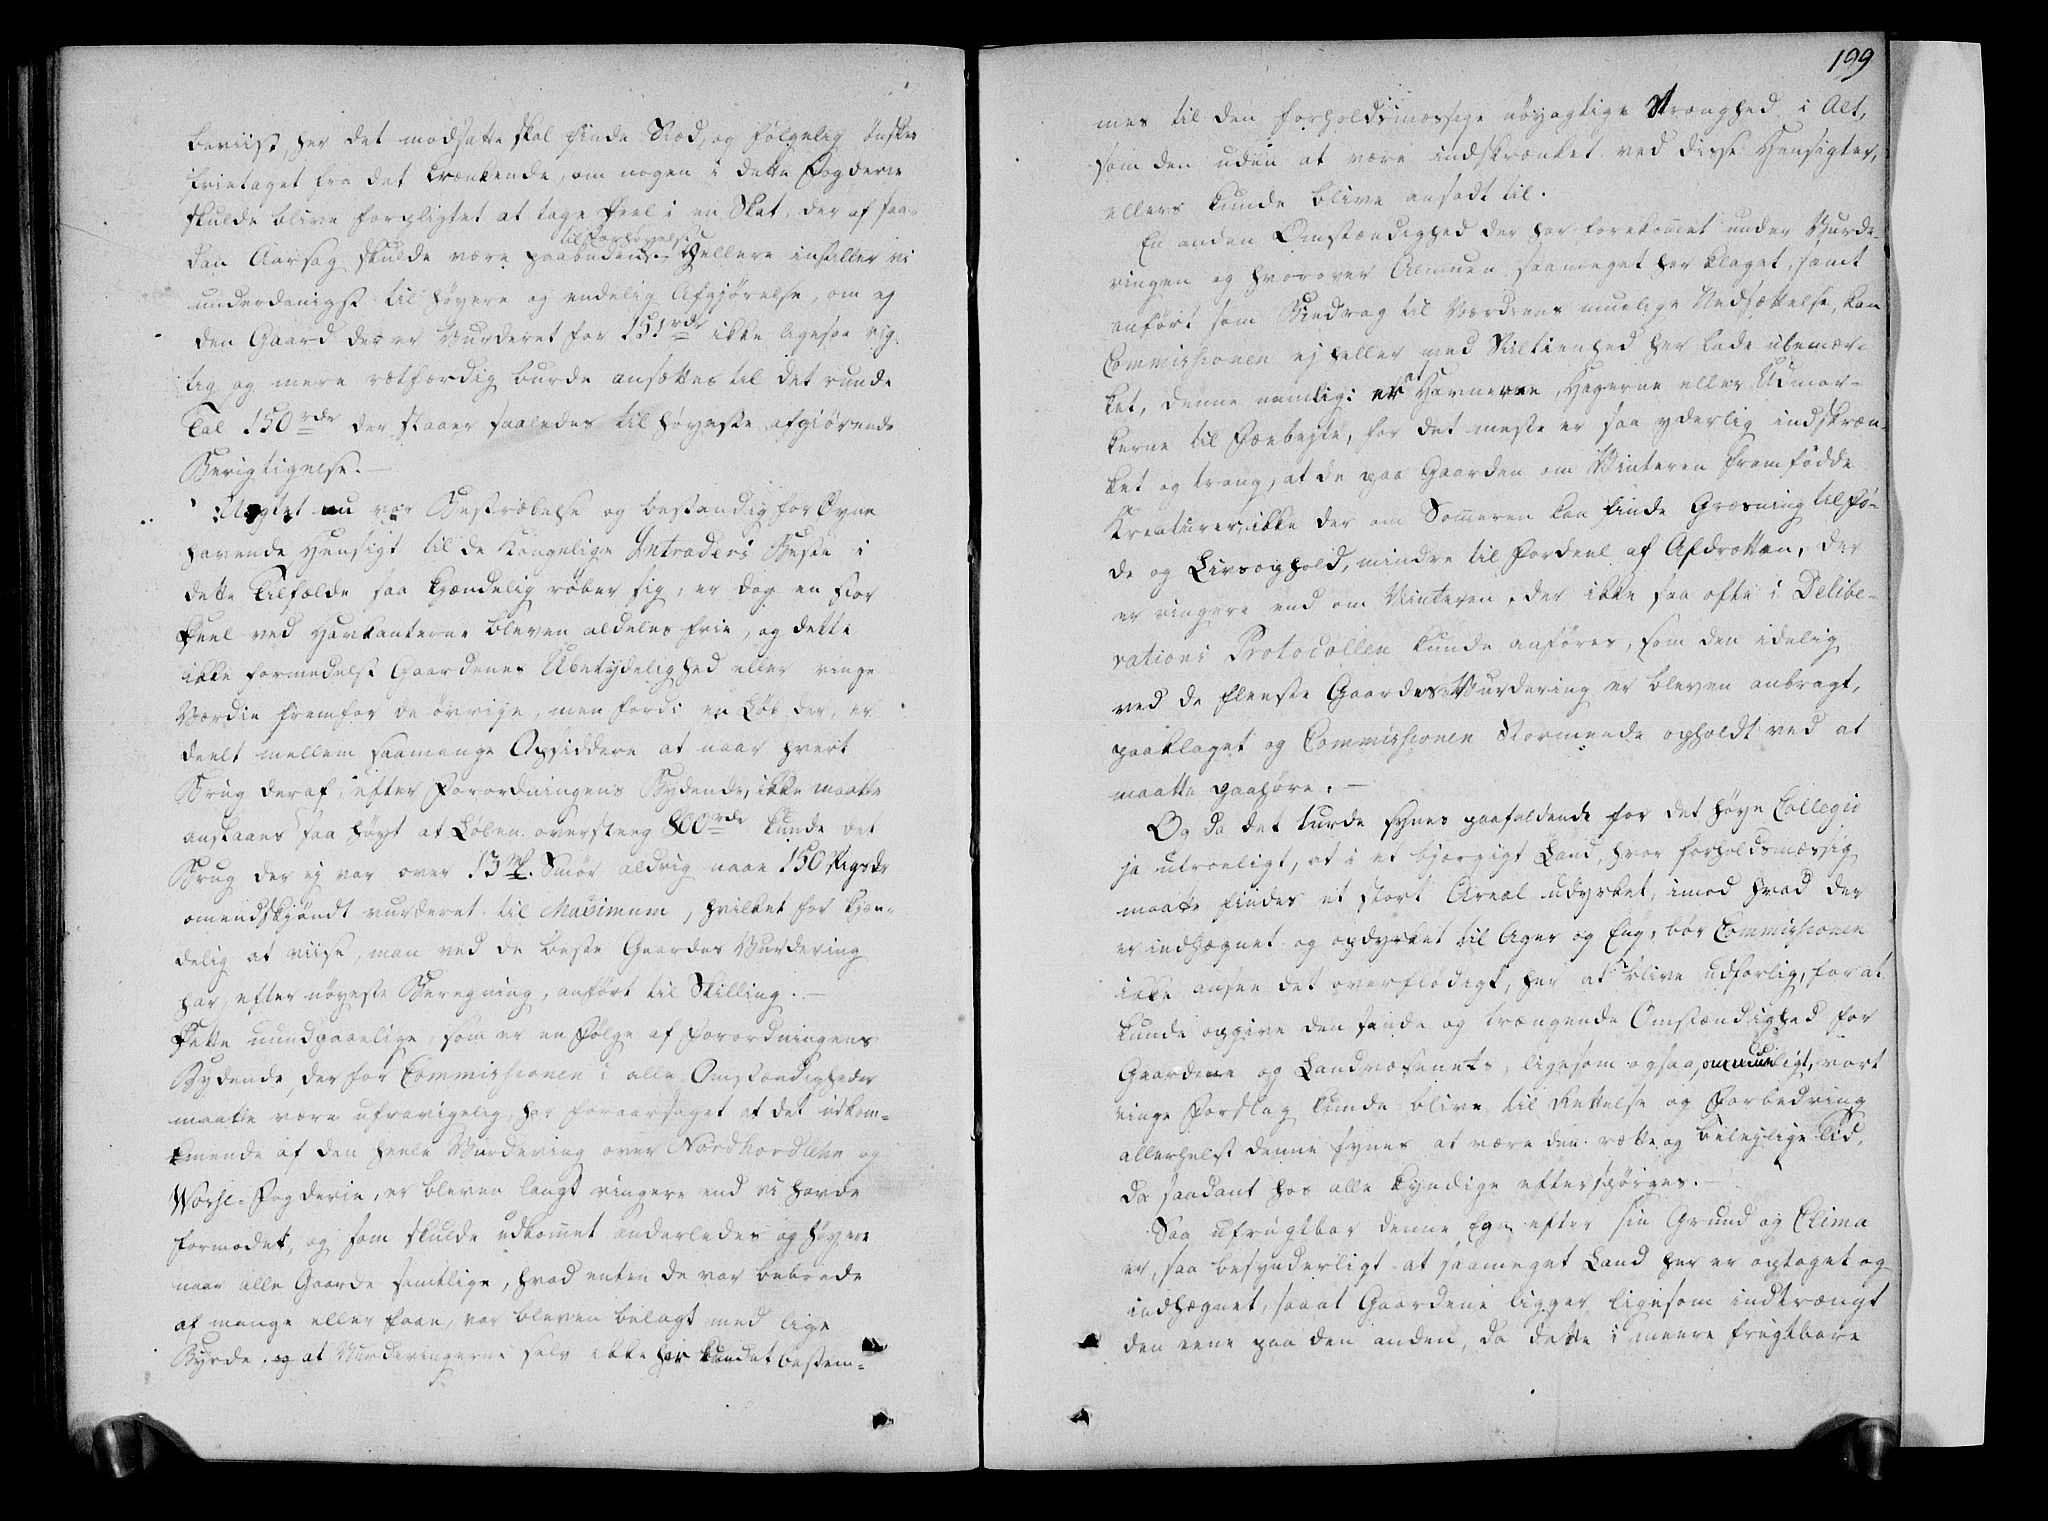 beviist, her det modsatte skal finde Sted, og følgelig ønskes
fritaget fra det krænkende, om nogen i dette Fogderie
skulde blive forpligtet at tage Deel i en Skat, der af saa-
dan Aarsag skulde være paabuden. Hellere indstiller vi
underdanigst til høyere og endelig Afgjørelse, om ej
den Gaard der er Vurderet for 151 rdr ikke ligesaa rig-
tig og mere retfærdig burde ansættes til det runde
Tal 150 rdr der staaer saaledes til høyeste afgiørende
Berigtigelse. —
Uagtet nu vor Bestræbelse og bestandig for Øyne
havende Hensigt til de Kongelige Intraders Beste i
dette Tilfælde saa kjændelig røber sig, er dog en stor
Deel ved Havkanterne bleven aldeles frie, og dette
ikke formedelst Gaardenes Ubetydelighed eller ringe
Værdie fremfor de øvrige, men fordi en Løb der, er
deelt mellem saamange Opsiddere at naar hvert
Brug deraf, efter Forordningens Bydende, ikke maatte
ansættes saa høyt at Løben oversteeg 800 rdr kunde det
Brug der ej var over 13 mk. Smør aldrig naae 150 Rigsdr
omendskjøndt vurderet til Maximum, hvilket for kjæn-
delig at viise, man ved de beste Gaardes Vurdering
har, efter nøyeste Beregning, anført til Skilling. —
Dette uundgaaelige, som er en Følge af Forordningens
Bydende, der for Commissionen i alle Omstændigheder
maatte være ufravigelig, har foraarsaget at det udkom-
mende af den heele Vurdering over Nordhordlehn og
Worse-Fogderie, er bleven langt ringere end vi havde
formodet, og som skulde udkommet anderledes og høyere
naar alle Gaarde samtlige, hvad enten de var beboede
af mange eller faae, var bleven belagt med lige
Byrde, og at Vurderingerne selv ikke har kundet bestem-
199
mes til den forholdsmæssige nøyagtige Strænghed i Alt,
som den uden at være indskrænket ved disse Hensigter,
ellers kunde blive ansadt til.
En anden Omstændighed der har forekommet under Vurde-
ringen og hvorover Almuen saameget har klaget, samt
anført som Biedrag til Værdiens muelige Nedsættelse, kan
Commissionen ej heller med Stiltienhed her lade ubemær-
ket, denne nemlig: at Havnerne, Hagerne eller Udmar-
kerne til Fæebejte, for det meste er saa yderlig indskræn-
ket og trang, at de paa Gaarden om Vinteren fremfødde
Kreaturer, ikke der om Sommeren kan finde Græsning til Fø-
de og Livsophold, mindre til Fordeel af Afdrotten, der
er ringere end om Vinteren, der ikke saa ofte i Delibe-
rations Protocollen kunde anføres, som den idelig
ved de fleeste Gaardes Vurdering er bleven anbragt,
paaklaget og Commissionen stormende opholdt ved at
maatte paahøre: —
Og da det turde synes paafaldende for det høye Collegio
ja utroeligt, at i et bjærgigt Land, hvor forholdsmæssig
maatte findes et stort Areal udyrket, imod hvad der
er indhægnet og opdyrket til Ager og Eng, bør Commissionen
ikke ansee det overflødigt, her at blive udførlig, for at
kunde opgive den sande og trængende Omstændighed for
Gaardene og Landvæsenets, ligesom ogsaa, om mueligt, vort
ringe Forslag kunde blive til Rettelse og Forbedring
allerhelst denne synes at være den rette og beleylige Tid,
da saadant hos alle kyndige efterspørges. —
Saa ufrugtbar denne Egn efter sin Grund og Clima
er, saa besynderligt at saameget Land her er optaget og
indhægnet, saa at Gaardene ligger ligesom indtrængt
den eene paa den anden, da dette i meere frugtbare